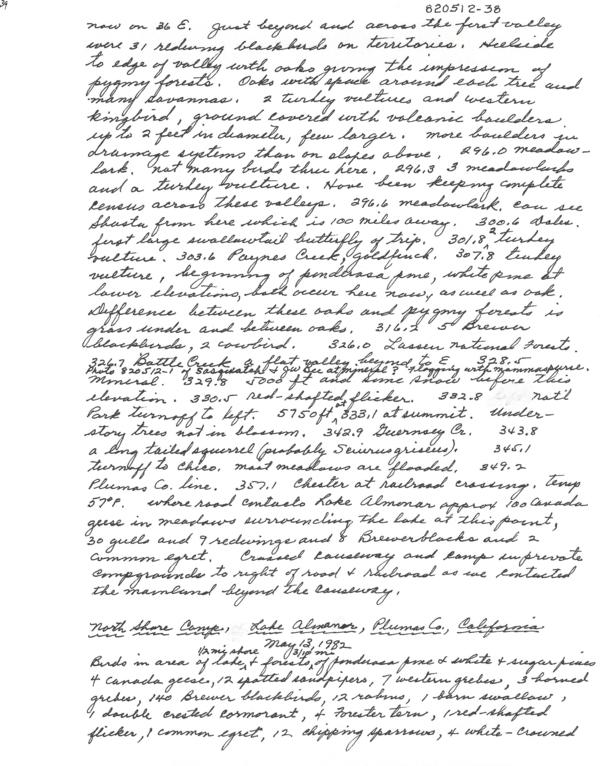 39
820512-38
now on 36 E. Just beyond and across the first valley
were 31 redwing blackbirds on territories. Hillside
to edge of valley with oaks giving the impression of
pygmy forests. Oaks with space around each tree and
many savannas. 2 turkey vultures and western
kingbird, ground covered with volcanic boulders
up to 2 feet in diameter, few larger. more boulders in
drainage systems than on slopes above. 296.0 meadow-
lark. not many birds thru here. 296.3 3 meadowlarks
and a turkey vulture. Have been keeping complete
census across these valleys. 296.6 meadowlark. can see
Shasta from here which is 100 miles away. 300.6 Dales.
first large swallowtail butterfly of trip. 301.8, 2 turkey
vulture. 303.6 Paynes Creek, goldfinch. 307.8 turkey
vulture, beginning of ponderosa pine, white pine at
lower elevations, both occur here now, as well as oak.
Difference between these oaks and pygmy forests is
grass under and between oaks. 316.2 5 Brewer
blackbirds, 2 cowbird. 326.0 Lassen National Forests.
326.7 Battle Creek a flat valley beyond to E 328.5
Photo 820512-1 of Sasquatch & GW Lee at Mineral? Flogging with mammas purse.
Mineral. 329.8 5000 ft and some snow before this
elevation. 330.5 red-shafted flicker. 332.8 nat'l
Park turnoff to left. 5750 ft at 333.1 at summit. Under-
story trees not in blossom. 342.9 Guernsey Cr. 343.8
a long tailed squirrel (probably Sciurus griseus). 345.1
turnoff to Chico. most meadows are flooded. 349.2
Plumas Co. line. 357.1 Chester at railroad crossing. temp
57°F. where road contacts Lake Almanor approx 100 Canada
geese in meadows surrounding the lake at this point,
30 gulls and 9 redwings and 8 Brewerblacks and 2
common egret. Crossed causeway and camp in private
campgrounds to right of road & railroad as we contacted
the mainland beyond the causeway.
North Shore Camp, Lake Almanor, Plumas Co., California
May 13, 1982
1/2 mi shore 3/10 mi
Birds in area of lake, & forests, of ponderosa pine & white & sugar pines
4 Canada geese, 12 spotted sandpipers, 7 western grebes, 3 horned
grebes, 140 Brewer blackbirds, 12 robins, 1 barn swallow,
1 double crested cormorant, 4 Forester tern, 1 red-shafted
flicker, 1 common egret, 12 chipping sparrows, 4 white-crowned